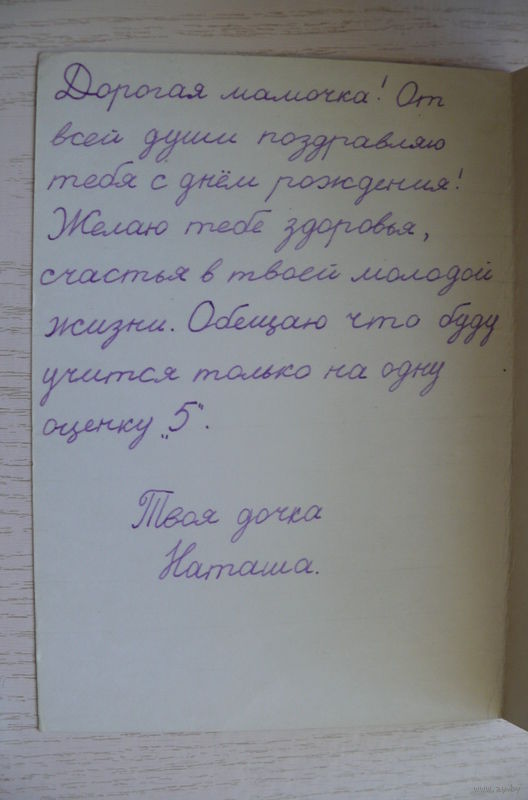 Дорогая мамочка! От
всей души поздравляю
тебя с днём рождения!
Желаю тебе здоровья,
счастья в твоей молодой
жизни. Обещаю что буду
учится только на одну
оценку „5“.
Твоя дочка
Наташа.